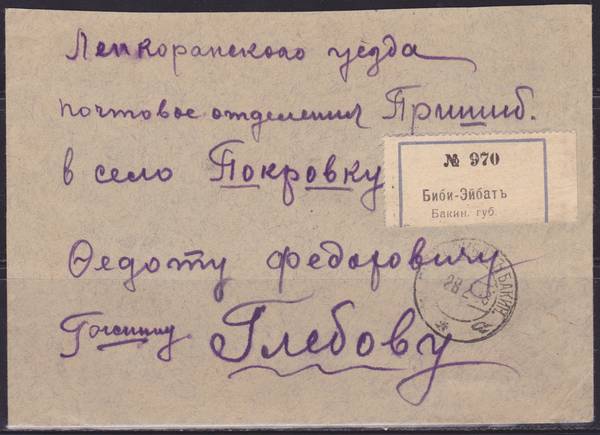 Ленкоранского уезда
почтовое отделения Пришиб.
в село Покровку
№ 970
Биби-Эйбатъ
Бакин. губ.
Ѳедоту Федоровичу
Глебову
БАКИН.